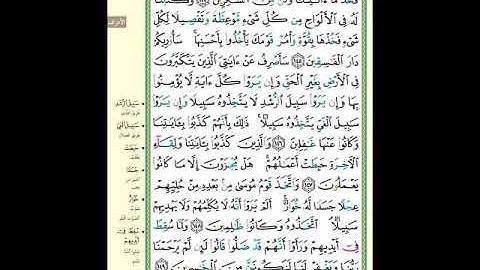 فَخُذْ مَآ ءَاتَيْتُكَ وَكُن مِّنَ ٱلشَّٰكِرِينَ ١٤٤ وَكَتَبْنَا
لَهُۥ فِى ٱلْأَلْوَاحِ مِن كُلِّ شَىْءٍ مَّوْعِظَةً وَتَفْصِيلًا لِّكُلِّ
شَىْءٍ فَخُذْهَا بِقُوَّةٍ وَأْمُرْ قَوْمَكَ يَأْخُذُوا۟ بِأَحْسَنِهَا ۚ سَأُو۟رِيكُمْ
دَارَ ٱلْفَٰسِقِينَ ١٤٥ سَأَصْرِفُ عَنْ ءَايَٰتِىَ ٱلَّذِينَ يَتَكَبَّرُونَ
فِى ٱلْأَرْضِ بِغَيْرِ ٱلْحَقِّ وَإِن يَرَوْا۟ كُلَّ ءَايَةٍ لَّا يُؤْمِنُوا۟
بِهَا وَإِن يَرَوْا۟ سَبِيلَ ٱلرُّشْدِ لَا يَتَّخِذُوهُ سَبِيلًا وَإِن يَرَوْا۟
سَبِيلَ ٱلْغَىِّ يَتَّخِذُوهُ سَبِيلًا ۚ ذَٰلِكَ بِأَنَّهُمْ كَذَّبُوا۟ بِـَٔايَٰتِنَا
وَكَانُوا۟ عَنْهَا غَٰفِلِينَ ١٤٦ وَٱلَّذِينَ كَذَّبُوا۟ بِـَٔايَٰتِنَا وَلِقَآءِ
ٱلْـَٔاخِرَةِ حَبِطَتْ أَعْمَٰلُهُمْ ۚ هَلْ يُجْزَوْنَ إِلَّا مَا كَانُوا۟
يَعْمَلُونَ ١٤٧ وَٱتَّخَذَ قَوْمُ مُوسَىٰ مِنۢ بَعْدِهِۦ مِنْ حُلِيِّهِمْ
عِجْلًا جَسَدًا لَّهُۥ خُوَارٌ ۚ أَلَمْ يَرَوْا۟ أَنَّهُۥ لَا يُكَلِّمُهُمْ وَلَا يَهْدِيهِمْ
سَبِيلًا ۘ ٱتَّخَذُوهُ وَكَانُوا۟ ظَٰلِمِينَ ١٤٨ وَلَمَّا سُقِطَ
فِىٓ أَيْدِيهِمْ وَرَأَوْا۟ أَنَّهُمْ قَدْ ضَلُّوا۟ قَالُوا۟ لَئِن لَّمْ يَرْحَمْنَا
رَبُّنَا وَيَغْفِرْ لَنَا لَنَكُونَنَّ مِنَ ٱلْخَٰسِرِينَ ١٤٩
سَبِيلَ الرُّشْدِ
سَبِيلَ الغَيِّ
حَبِطَتْ
جَسَدًا
خُوَارٌ
سُقِطَ فِي
أَيْدِيهِمْ